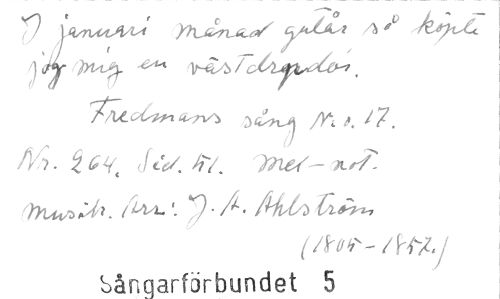 I januari månad gulår så köpte
jag mig en västdragdös.
Fredmans sång N:o. 17.
Nr. 264. Sid. 51. Mel-not.
Musikr. Arr: J. A. Ahlström
(1805-1857.)
Sångarförbundet 5